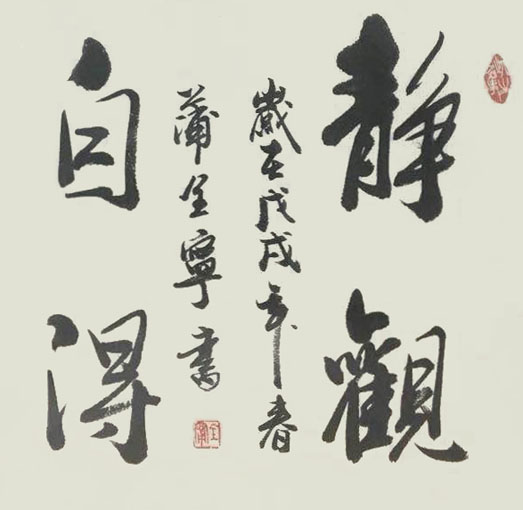 靜觀
自得
歲在戊戌年春
蒲全寧書